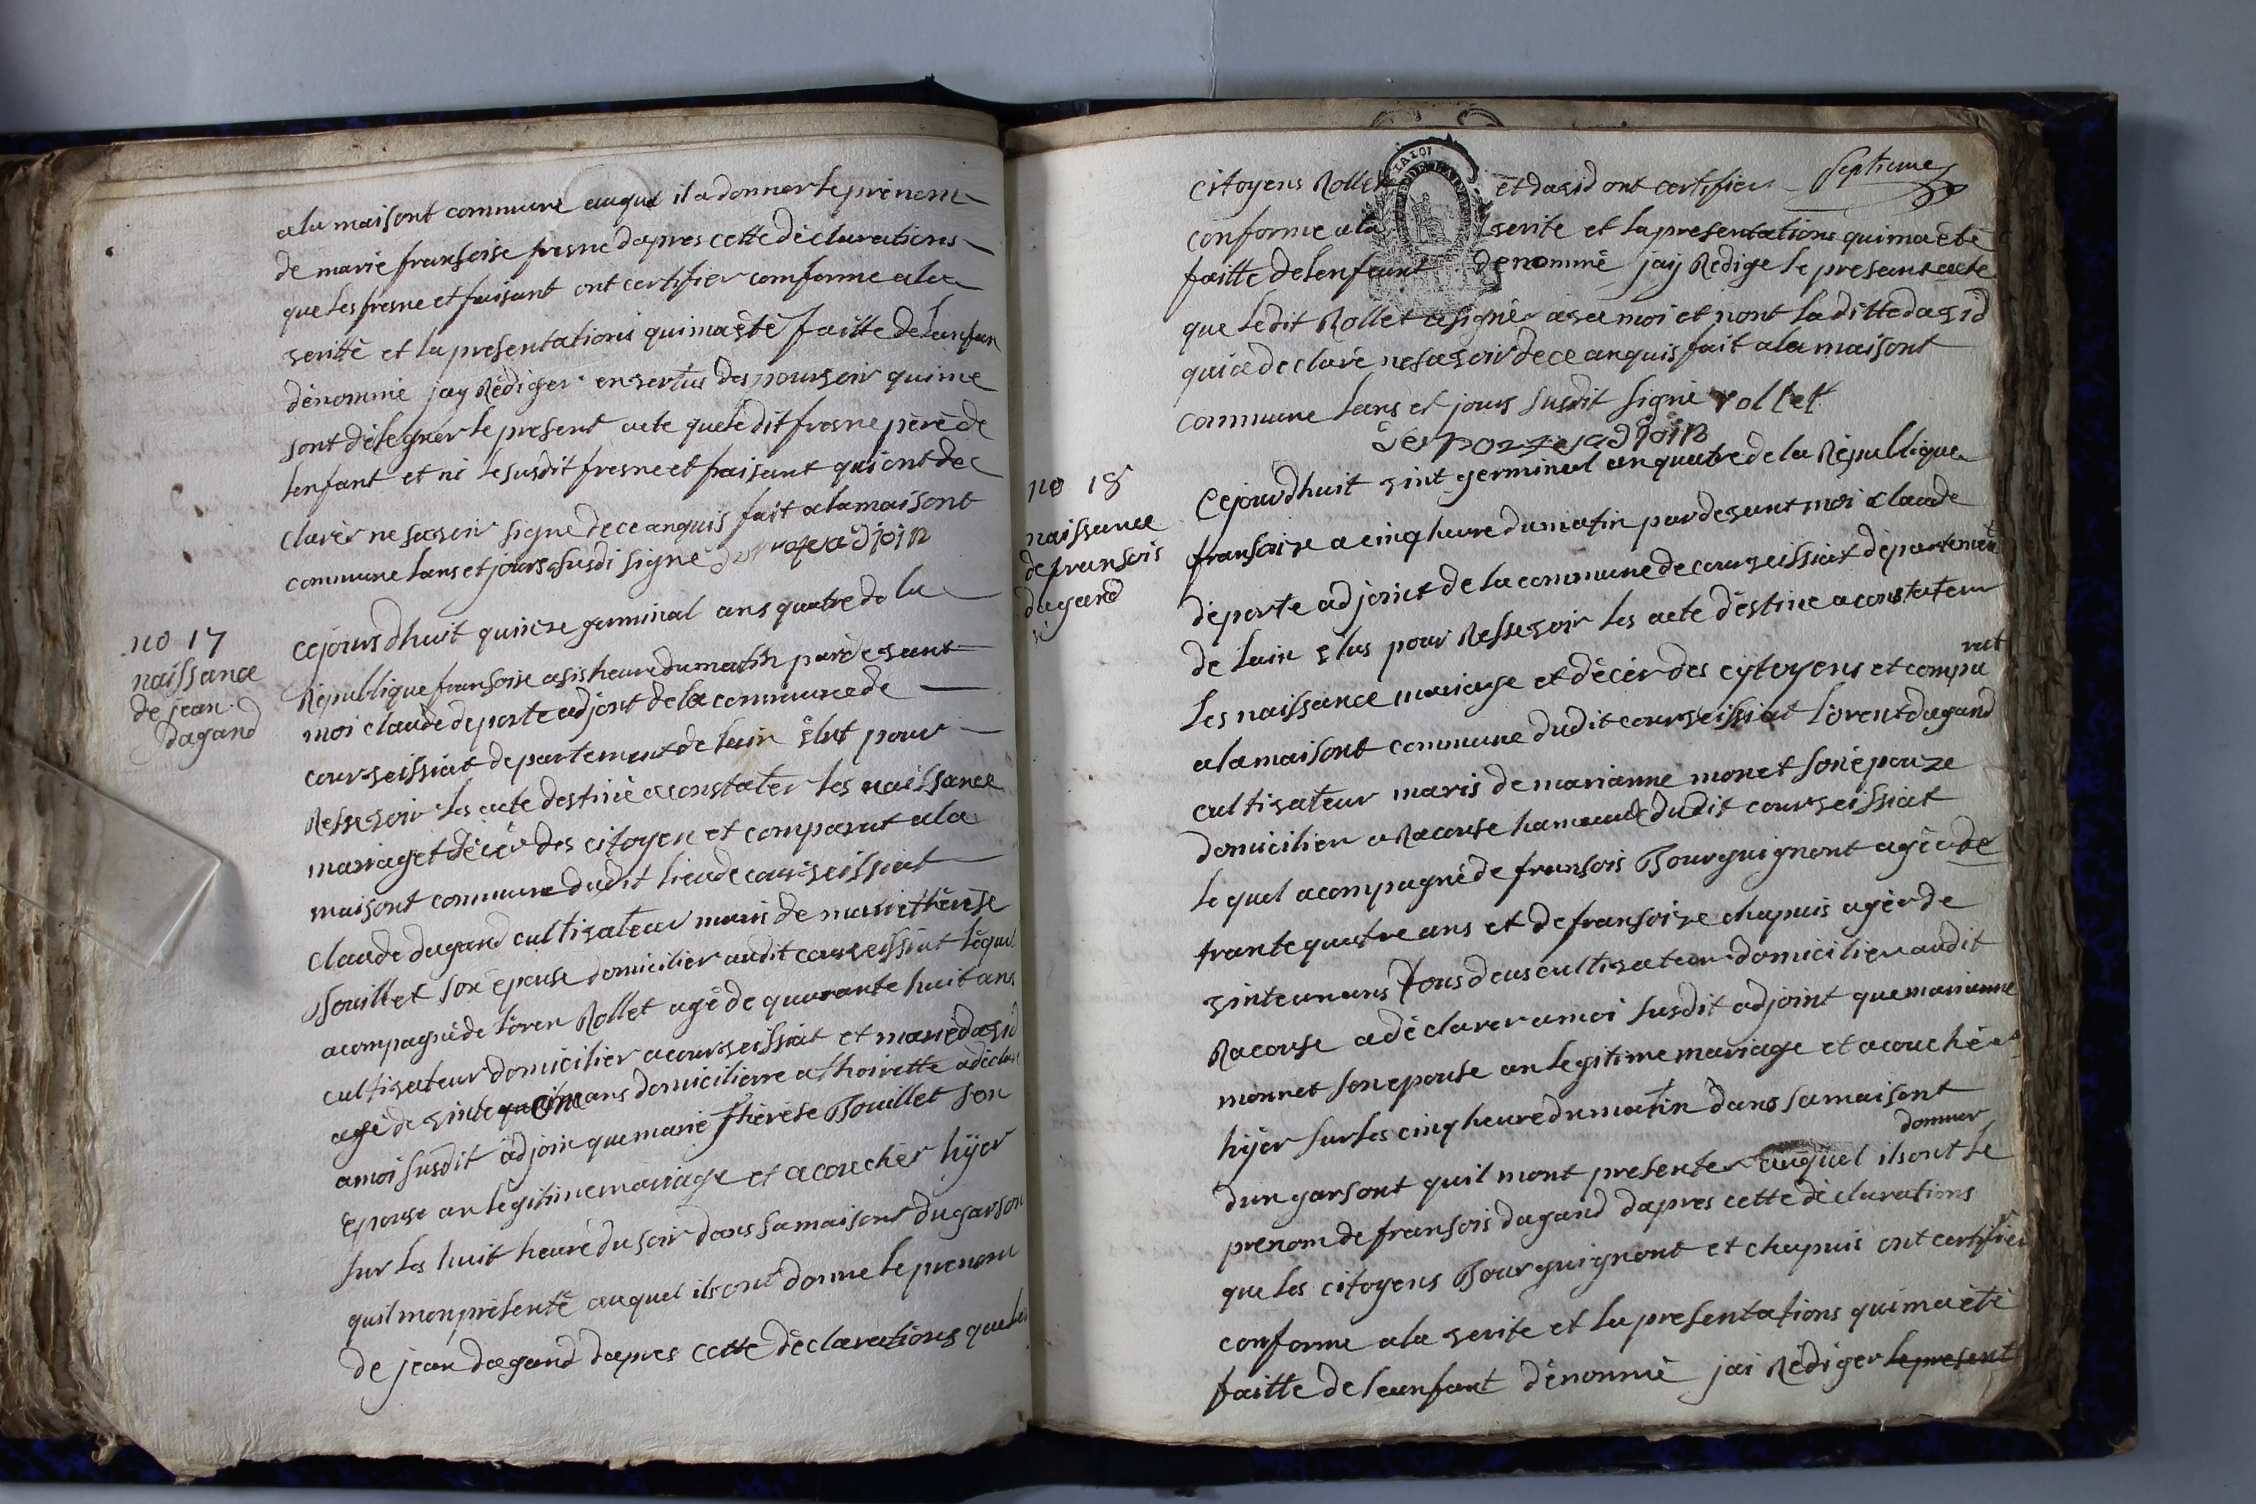 a la maisont commune auquel il a donner le prenom
de marie fransoise fresne dapres cette déclarations
que les fresne et faisant ont certifier comforme a la
verittè et la presentations qui ma étè faitte de lenfan
dénommé jay Rèdiger en vertus des pouvoir qui me
sont délegner le present acte que le dit fresne père de
lenfant et ni le susdit fresne et faisant qui ont de
clarèr ne savoir signe de ce anquis fait a la maisont
commune lans et jours susdi signé deporte adjoin
no 17
naissance
de jean
dagand
cejours dhuit quinze germinal ans quatre de la
Republique fransoise a sis heure du matin par devant
moi claude deporte adjont de la commune de
courveissiat departement de lain élut pour
Ressevoir les acte destiné a constater les naissance
mariage et décér des citoyen et comparut a la
maisont commune dudit lieu de courveissiat
claude dagand cultivateur maris de marie thérèse
Bouillet son épouse domicilier audit courveissiat lequel
acompagné de loren Rollet agé de quarante huit ans
cultivateur domicilier a courveissiat et marie david
agé de vinte onze ans domicilierre a thoirette a déclaré
a moi susdit adjoin que marie thérèse Bouillet son
épouse an légitime mariage et a coucher hÿer
sur les huit heure du soir dans sa maisont du garson
quil mon présenté auquel ils ont donne le prenom
de jean dagand dapres cette déclarations que les
septieme
citoyens Rollet et david ont certifier
conforme a la verite et la presentations qui ma été
faitte de lenfant denommé jaÿ Redige le present acte
que ledit Rollet a signér avec moi et nont la ditte david
qui a declaré ne savoir de ce anquis fait a la maisont
commune lans et jours susdit signé rollet
deporte adjoin
no 18
naissance
de fransois
dagand
Cejourdhuit vint germinal an quatre de la République
fransoize a cinq heure du matin par devant moi claude
déporte adjoint de la commune de courveissiat département
de lain élus pour Ressevoir les acte déstiné a constateur
les naissance mariage et décér des cytoyens et compa
rut
a la maisont commune dudit courveissiat lorent dagand
cultivateur maris de marianne monet son épouze
domicilier a Racouse hameau dudit courveissiat
le quel acompagné de fransois Bourguignont agé de
trante quatre ans et de fransoize chapuis agér de
vinte un ans tous deus cultivateur domicilier audit
Racouse a déclarer a moi susdit adjoint que marianne
monnet son epouse an legitime mariage et a couché
hÿer sur les cinq heure du matin dans sa maisont
dun garsont quil mont presenter auquel ils ont donner le
prenom de fransois dagand dapres cette déclarations
que les citoyens Bourguignont et chapuis ont certifiér
conforme a la verite et la presentations qui ma été
faitte de leanfant dénommé jai Rèdiger le present